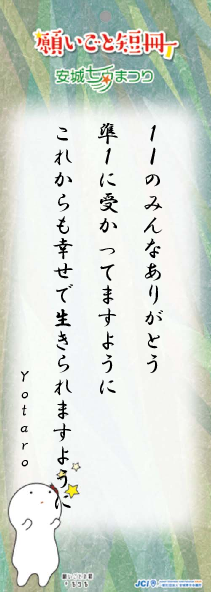 願いごと短冊
安城七夕まつり
11のみんなありがとう
準1に受かってますように
これからも幸せで生きられますように
Yotaro
JCI